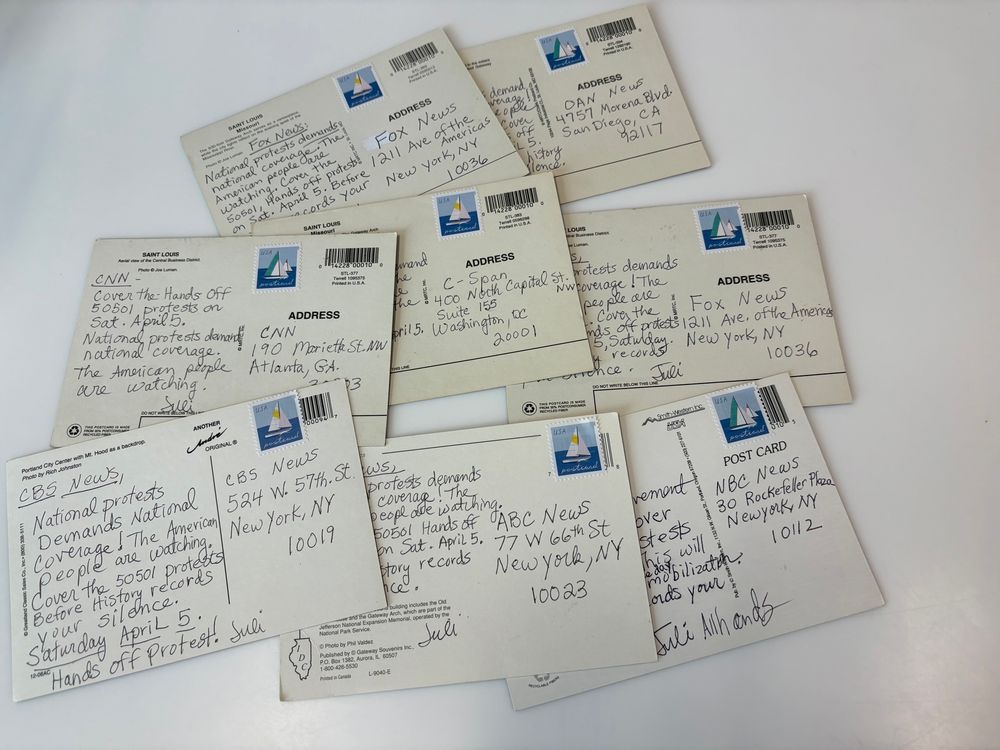 SAINT LOUIS
Missouri
Photo © Joe Luman.
Fox News:
National protests demands
national coverage. The
American people are
watching. Cover the
50501, Hands off protests
on Sat. April 5. Before
records your
USA
postcard
0 14228 00010 0
STL-393
Printed in U.S.A.
ADDRESS
Fox News
1211 Ave of the
Americas
New York, NY
10036
demand
coverage
people
Cover
off
5.
history
USA
postcard
14228 00010 0
Printed in U.S.A.
ADDRESS
OAN News
4757 Morena Blvd
San Diego, CA
92117
SAINT LOUIS
Aerial view of the Central Business District.
Photo © Joe Luman.
CNN -
Cover the Hands Off
50501 protests on
Sat. April 5.
National protests demand
national coverage.
The American people
are watching.
Juli
THIS POSTCARD IS MADE
FROM 50% POSTCONSUMER
RECYCLED FIBER
DO NOT WRITE BELOW THIS LINE
USA
postcard
0 14228 00010 0
STL-377
Terrell 1095375
Printed in U.S.A.
ADDRESS
CNN
190 Marietta St. NW
Atlanta, GA.
SAINT LOUIS
Missouri
Gateway Arch
mand
the
April 5.
THIS LINE
USA
postcard
0 14228 00010 0
STL-393
Printed in U.S.A.
ADDRESS
C-Span
400 North Capital St. NW
Suite 155
Washington, DC
20001
LOUIS
Central Business District.
protests demands
coverage! The
people are
Cover the
hands off protests
5, Saturday.
records
silence. Juli
THIS POSTCARD IS MADE
FROM 50% POSTCONSUMER
RECYCLED FIBER
DO NOT WRITE BELOW THIS LINE
USA
postcard
14228 00010 0
STL-377
Terrell 1095375
Printed in U.S.A.
ADDRESS
Fox News
1211 Ave. of the Americas
New York, NY
10036
Portland City Center with Mt. Hood as a backdrop.
Photo by Rich Johnston
ANOTHER
ORIGINAL®
CBS News,
National protests
Demands National
Coverage! The American
People are watching.
Cover the 50501 protests
Before History records
your silence.
Saturday April 5.
Hands off Protest! Juli
12-06AC
USA
postcard
CBS News
524 W. 57th St.
New York, NY
10019
News,
protests demands
coverage! The
people are watching.
50501 Hands off
on Sat. April 5.
history records
building includes the Old
and the Gateway Arch, which are part of the
Jefferson National Expansion Memorial, operated by the
National Park Service.
© Photo by Phil Valdez
Published by © Gateway Souvenirs Inc.,
P.O. Box 1382, Aurora, IL 60507
1-800-426-5530
Printed in Canada
L-9040-E
Juli
USA
postcard
ABC News
77 W 66th St
New York, NY
10023
Smith-Western Inc.
movement
over
protests
This will
mobilization.
records your
Juli Allhands
USA
postcard
POST CARD
NBC News
30 Rockefeller Plaza
New York, NY
10112